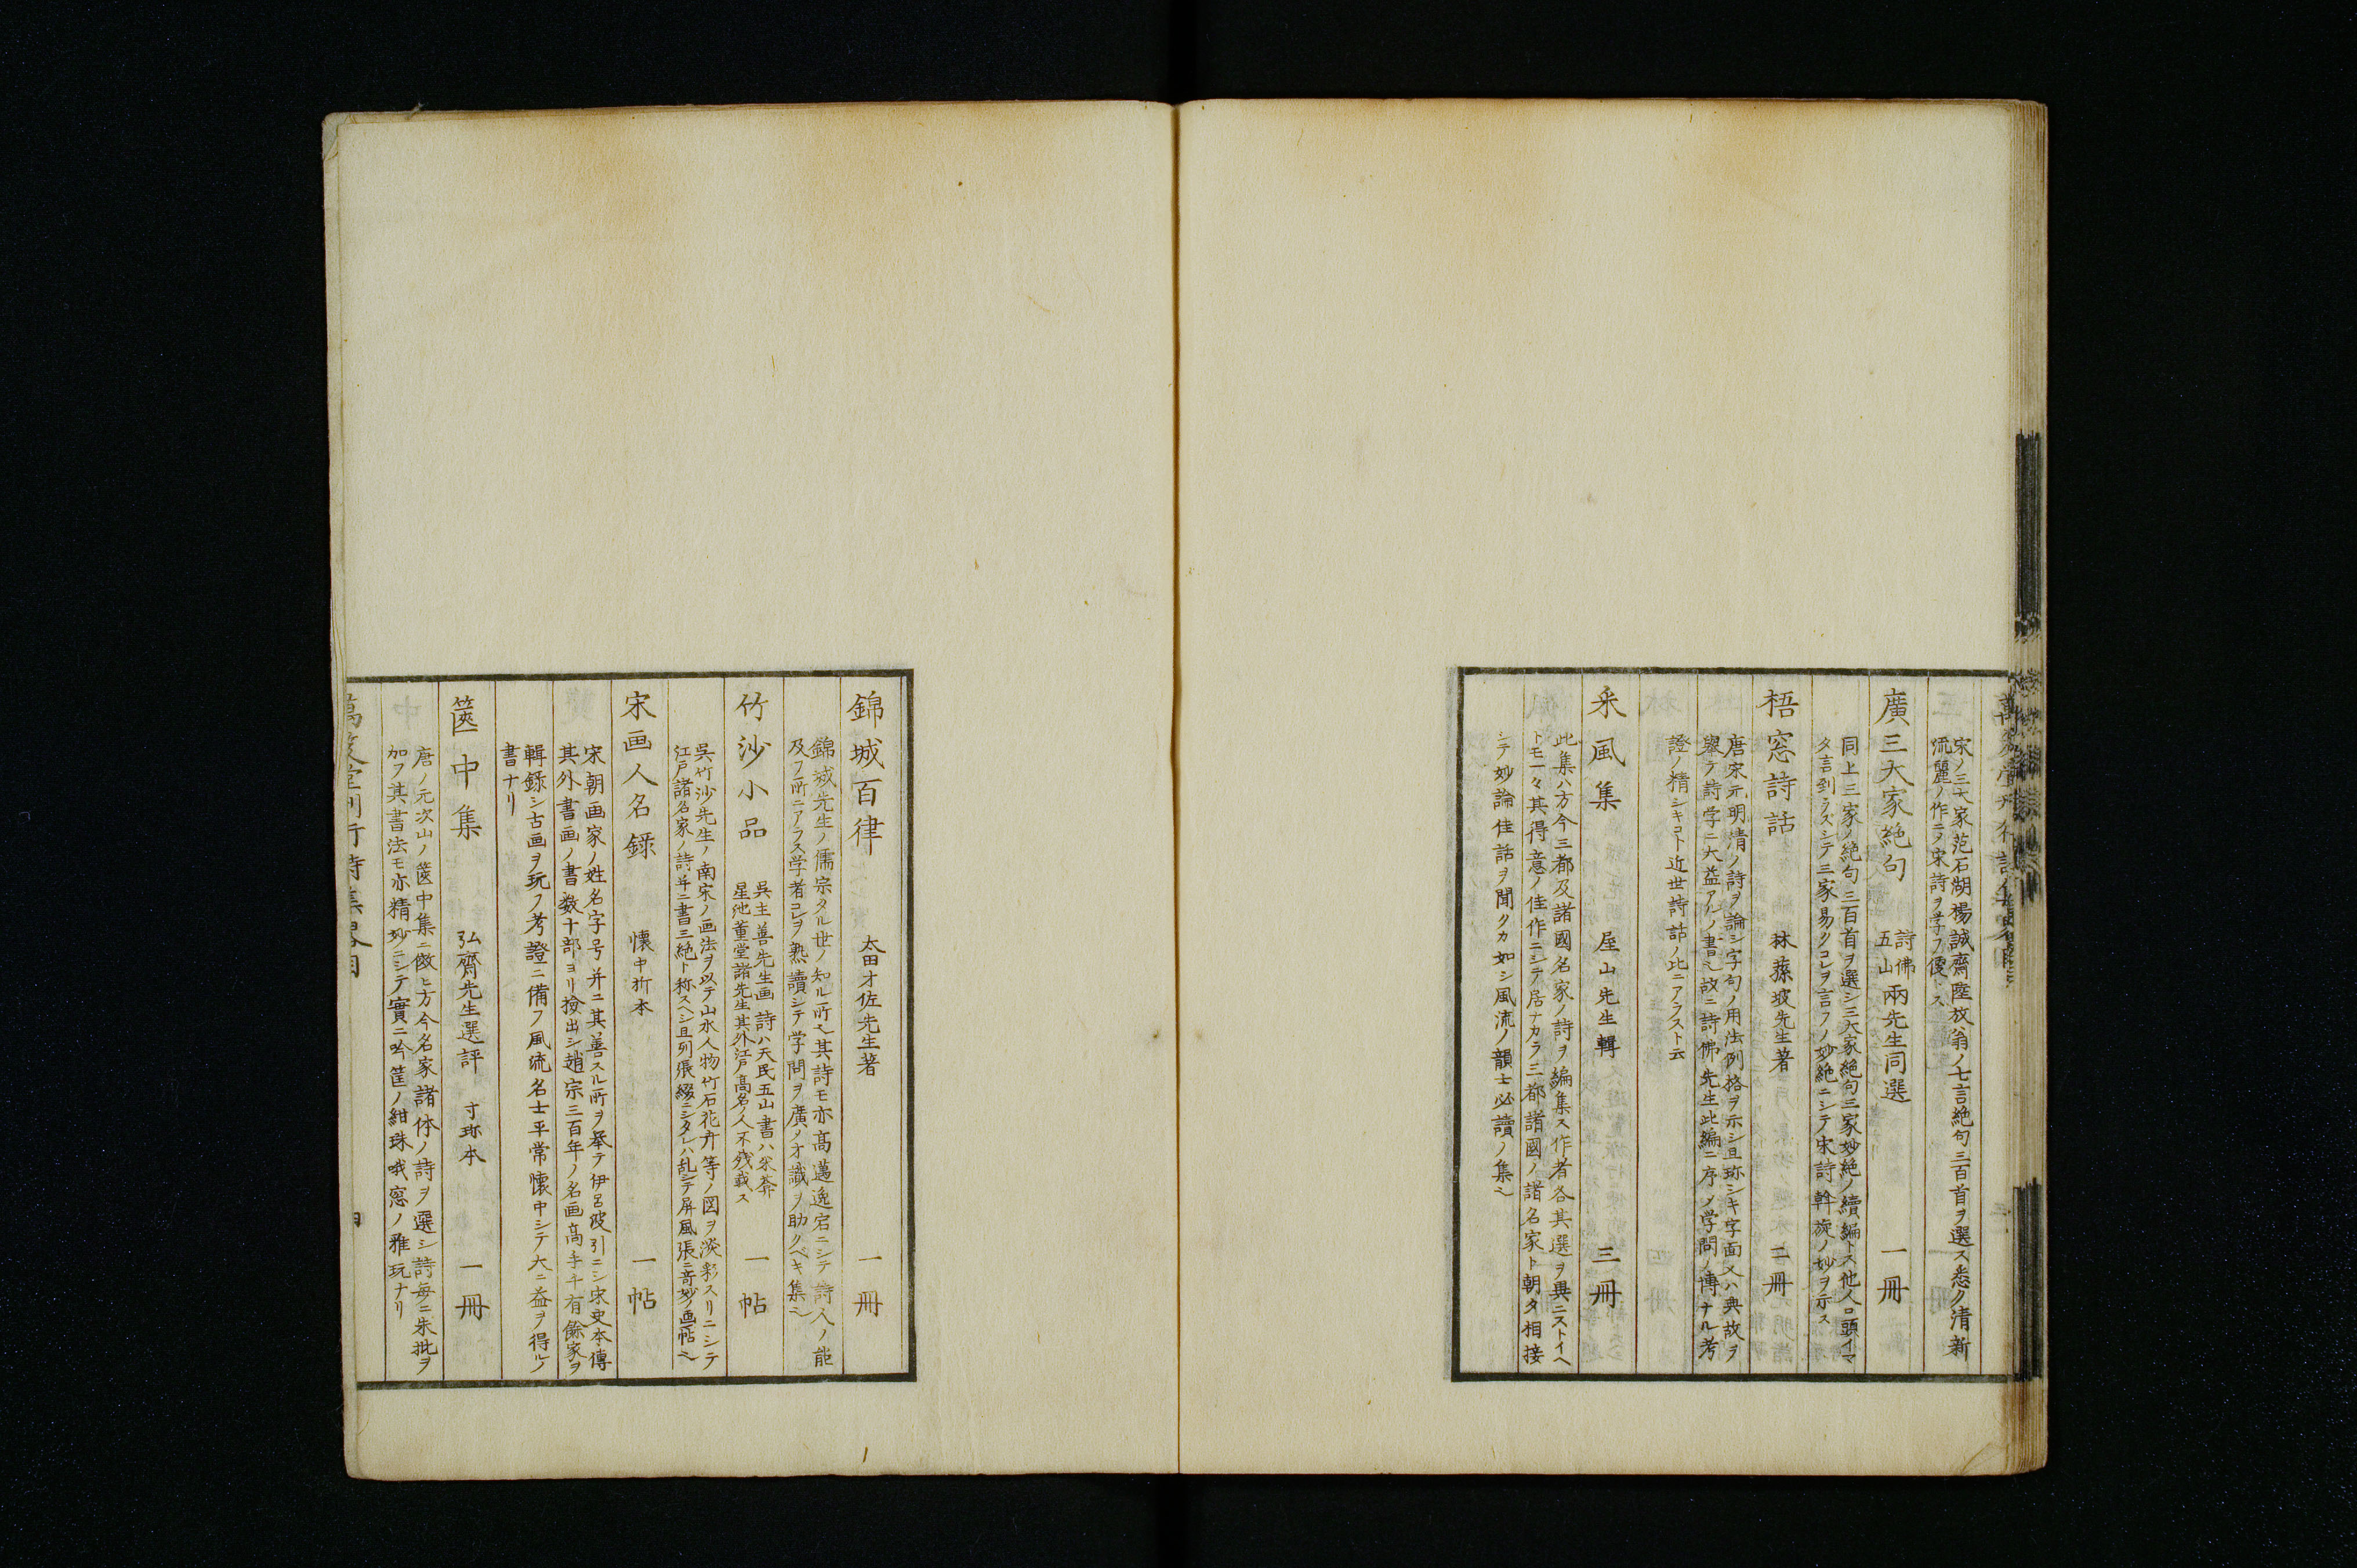 宋ノ三大家范石湖楊誠齋陸放翁ノ七言絶句三百首ヲ選ス悉ク清新
流麗ノ作ニテ宋詩ヲ学フ優トス
廣三大家絶句 詩佛五山兩先生同選 一冊
同上三家ノ絶句三百首ヲ選シ三大家絶句三家妙絶ノ續編トス他人口頭イマ
タ言到ラズシテ三家易クコレヲ言フノ妙絶ニシテ宋詩斡旋ノ妙ヲ示ス
梧窓詩話 林蓀坡先生著 二冊
唐宋元明清ノ詩ヲ論シ字句ノ用法例格ヲ示シ且珎シキ字面又ハ典故ヲ
舉テ詩学ニ大益アルノ書也故ニ詩佛先生此編ニ序メ学問ノ博ナル考
證ノ精シキコト近世詩話ノ比ニアラスト云
采風集 屋山先生輯 三冊
此集ハ方今三都及諸國名家ノ詩ヲ編集ス作者各其選ヲ異ニストイヘ
トモ一々其得意ノ佳作ニシテ居ナカラ三都諸國ノ諸名家ト朝夕相接
シテ妙論佳話ヲ聞クカ如シ風流ノ韻士必讀ノ集也
錦城百律 太田才佐先生著 一冊
錦城先生ノ儒宗タル世ノ知ル所也其詩モ亦高邁逸宕ニシテ詩人ノ能
及フ所ニアラス学者コレヲ熟讀シテ学問ヲ廣メオ識ヲ助クベキ集也
竹沙小品 呉主善先生画詩ハ天民五山書ハ米菴 一帖
星池董堂諸先生其外江戸高名ノ人不残載ス
呉竹沙先生ノ南宋ノ画法ヲ以テ山水人物竹石花卉等ノ図ヲ淡彩スリニシテ
江戸諸名家ノ詩并ニ書三絶ト称スヘシ且列張綴ニシタレハ乱シテ屏風張ニ奇妙ノ画帖也
宋画人名録 懐中折本 一帖
宋朝画家ノ姓名字号并ニ其善スル所ヲ挙テ伊呂波引ニシ宋史本傳
其外書画ノ書数十部ヨリ撿出シ趙宗三百年ノ名画高手千有餘家ヲ
輯録シ古画ヲ玩フ考證ニ備フ風流名士平常懐中シテ大ニ益ヲ得ルノ
書ナリ
篋中集 弘齋先生選評 寸珎本 一冊
唐ノ元次山ノ篋中集ニ倣ヒ方今名家諸体ノ詩ヲ選シ詩毎ニ朱批ヲ
加フ其書法モ亦精妙ニシテ實ニ吟筐ノ紺珠哦窓ノ雅玩ナリ